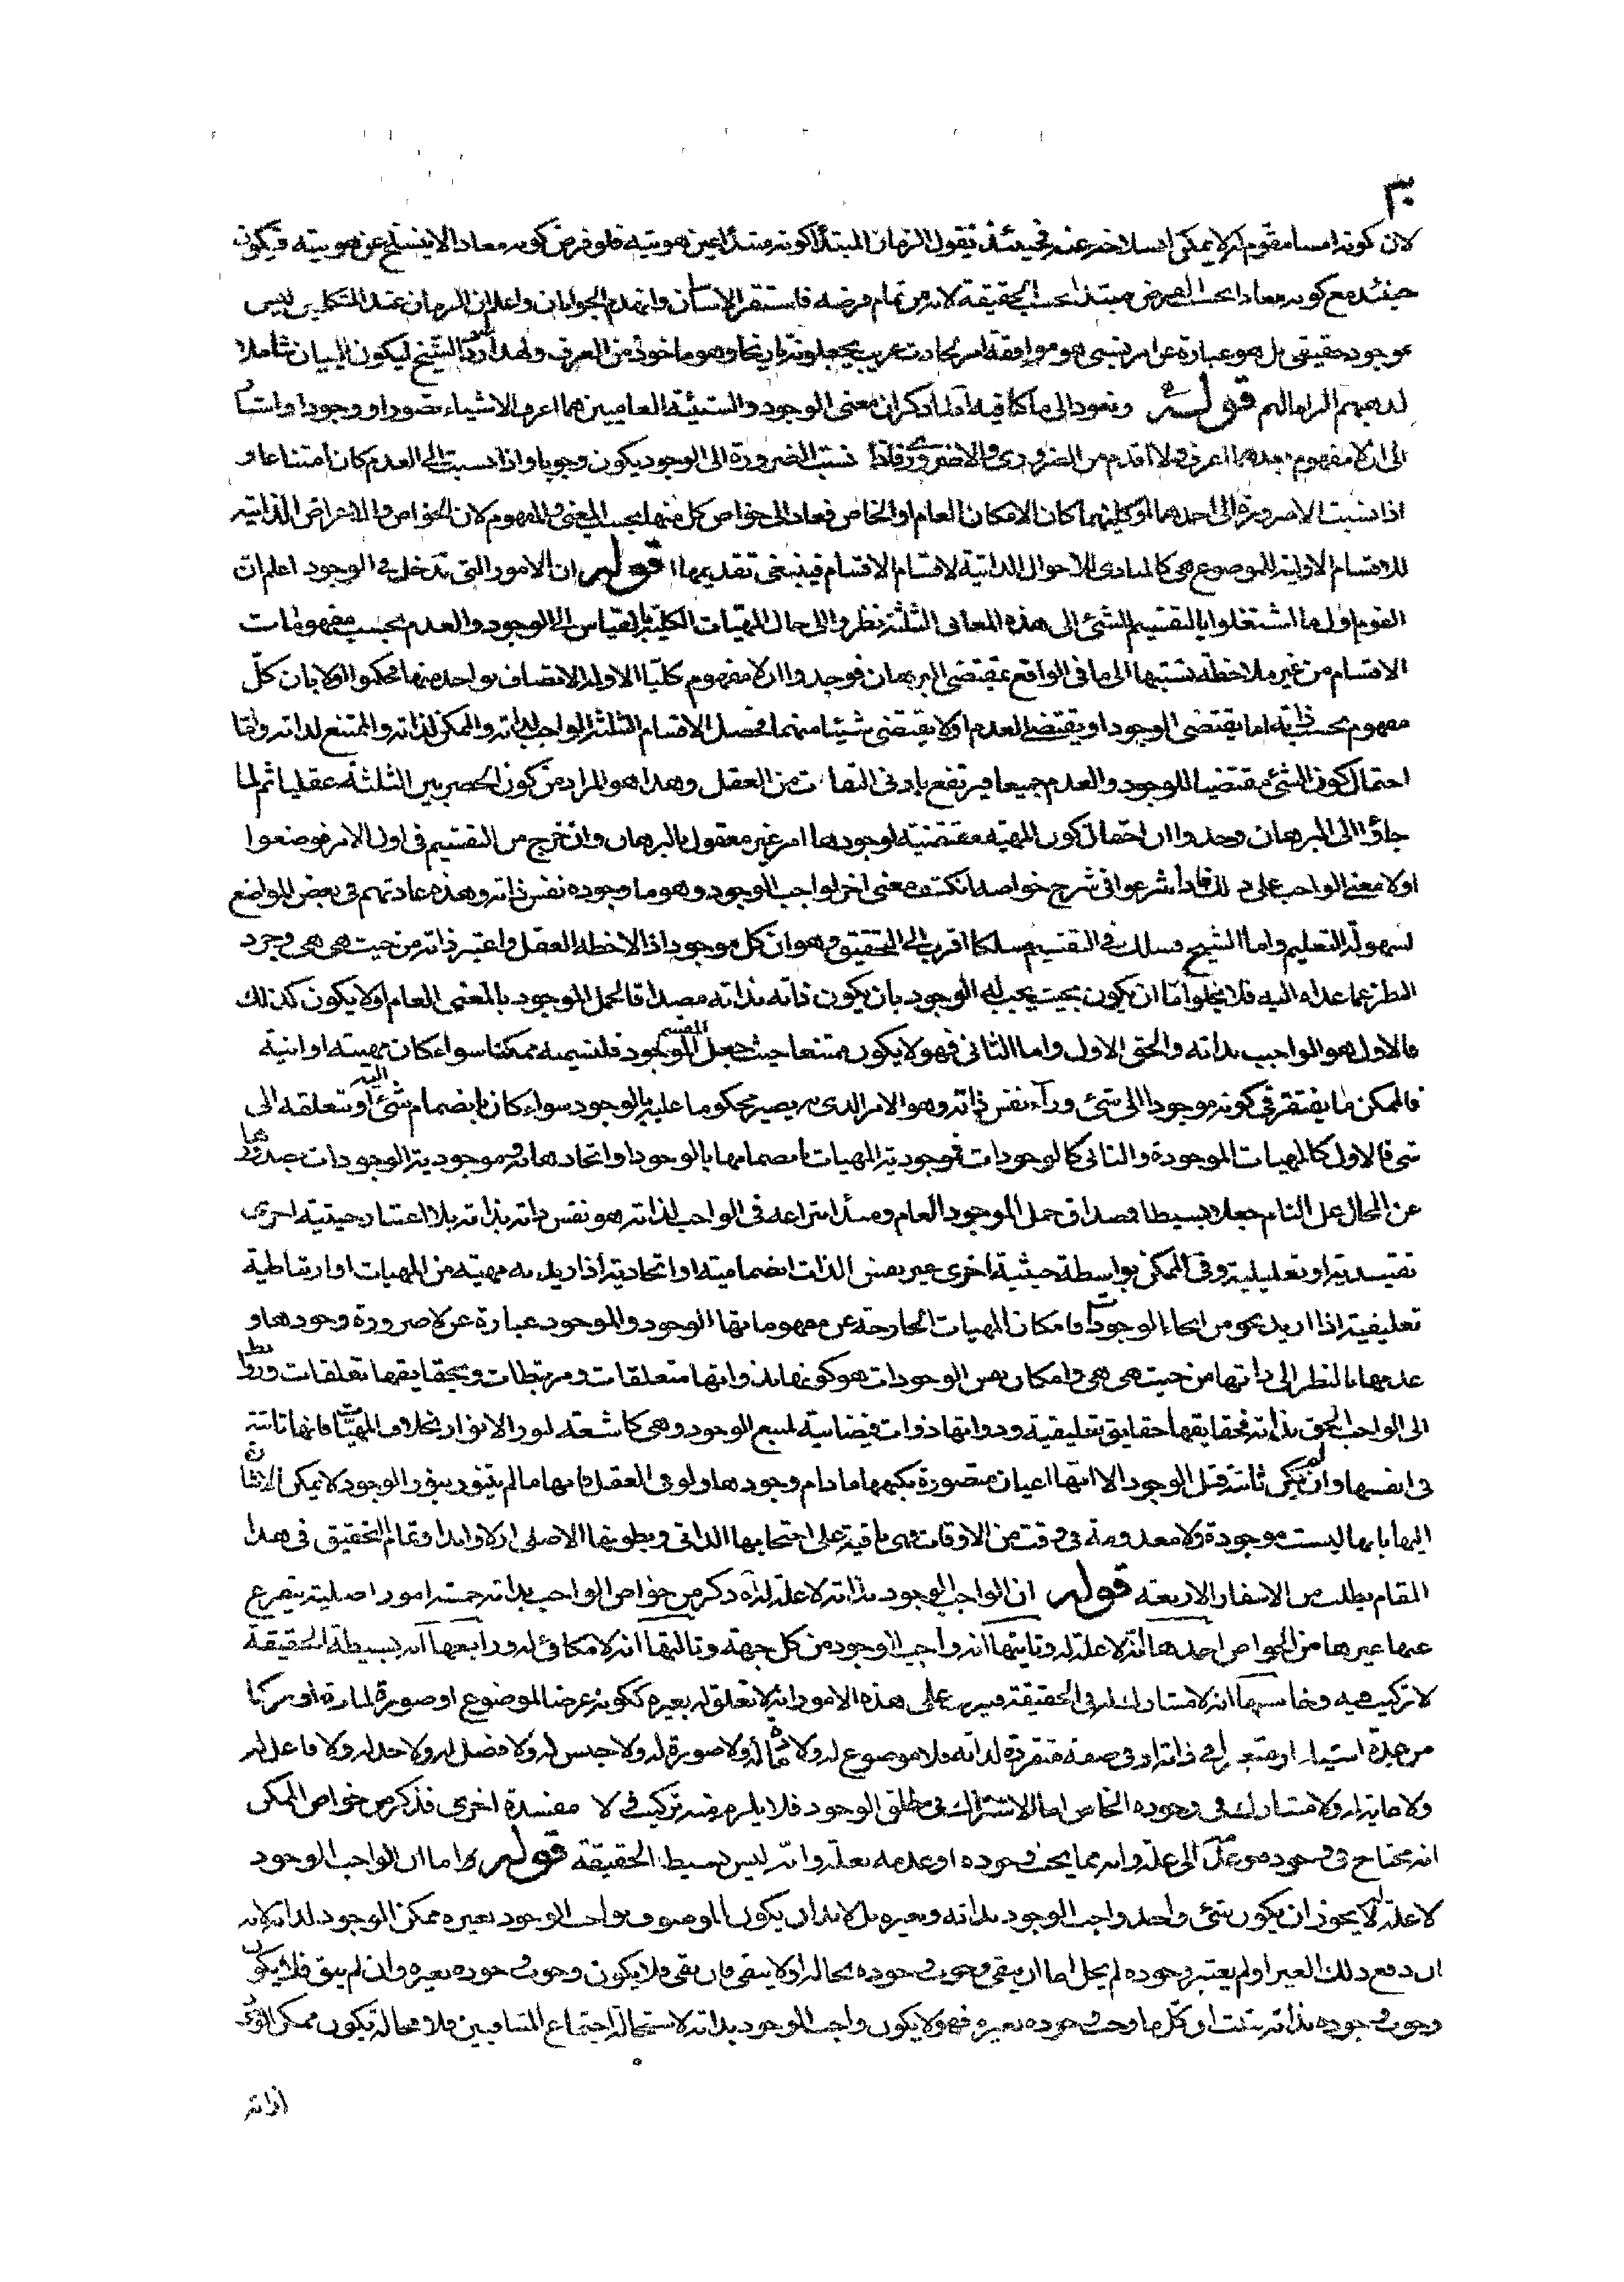 ٣٠
لان كونه امسا مقوم له لا يمكن انسلاخه عنه فحينئذ نقول الزمان المبتدأ كونه مبتدأ عين هويته فلو فرض كونه معادا لا ينسلخ عن هويته فيكون
حينئذ مع كونه معادا بحسب الفرض مبتدأ بحسب الحقيقة لانه من تمام فرضه فاستقر الاساس وانهدم الجوابان واعلم ان الزمان عند المتكلمين ليس
بموجود حقيقى بل هو عبارة عن امر نسبى هو موافقة امر لحادث غريب يجعلونه تاريخا وهو ماخوذ من العرف ولهذا الشيخ ليكون البيان شاملا
لمذهبهم الزاما لهم قوله ونعود الى ما كنا فيه لما ذكر ان معنى الوجود والشيئية العاميين هما اعرف الاشياء تصورا ووجودا واشار
الى ان لا مفهوم بعدهما اعرف ولا اقدم من الضرورى واللاضرورى فاذا نسبت الضرورة الى الوجود يكون وجوبا واذا نسبت الى العدم كان امتناعا و
اذا نسبت اللاضرورة الى احدهما او كليهما كان الامكان العام او الخاص فعاد الى خواص كل منها بحسب المعنى والمفهوم لان الخواص والاعراض الذاتية
للاقسام الاولية للموضوع هى كالمبادى للاحوال الذاتية لاقسام الاقسام فينبغى تقديمها قوله ان الامور التى تدخل فى الوجود اعلم ان
القوم اول ما اشتغلوا بالتقسيم للشئ الى هذه المعانى الثلثة نظروا الى حال المهيات الكلية بالقياس الى الوجود والعدم بحسب مفهومات
الاقسام من غير ملاحظة نسبتها الى ما فى الواقع بمقتضى البرهان فوجدوا ان لا مفهوم كليا الا وله الاتصاف بواحد منها فحكموا اولا بان كل
مفهوم بحسب ذاته اما يقتضى الوجود او يقتضى العدم او لا يقتضى شيئا منهما فحصل الاقسام الثلثة الواجب لذاته والممكن لذاته والممتنع لذاته واما
احتمال كون الشئ مقتضيا للوجود والعدم جميعا فيرتفع بادنى التفات من العقل وهذا هو المراد من كون الحصر بين الثلثة عقليا ثم لما
جاؤا الى البرهان وجدوا ان احتمال كون المهية مقتضية لوجودها امر غير معقول بالبرهان وان خرج من التقسيم فى اول الامر فوضعوا
اولا معنى الواجب على ذلك فاذا شرعوا فى شرح خواصه انكشف معنى اخر لواجب الوجود وهو ما وجوده نفس ذاته وهذه عادتهم فى بعض المواضع
لسهولة التعليم واما الشيخ فسلك فى التقسيم مسلكا اقرب الى التحقيق وهو ان كل موجود اذا لاحظه العقل واعتبر ذاته من حيث هى هى وجرد
النظر عما عداه اليه فلا يخلوا اما ان يكون بحيث يجب له الوجود بان يكون ذاته بذاته مصداقا لحمل الموجود بالمعنى العام او لا يكون كذلك
فالاول هو الواجب بذاته والحق الاول واما الثانى فهو لا يكون ممتنعا حيث جعل المقسم الموجود فلنسميه ممكنا سواء كان مهيته او انية
فالممكن ما يفتقر فى كونه موجودا الى شئ وراء نفس ذاته وهو الامر الذى به يصير محكوما عليه بالوجود سواء كان بانضمام شئ اليه او بتعلقه الى
شئ فالاول كالمهيات الموجودة والثانى كالوجودات فموجودية المهيات بانضمامها بالوجود او اتحادها به وموجودية الوجودات بصدورها
عن الجاعل التام جعلا بسيطا فمصداق حمل الموجود العام ومبدأ انتزاعه فى الواجب لذاته هو نفس ذاته بذاته بلا اعتبار حيثية اخرى
تقييدية او تعليلية وفى الممكن بواسطة حيثية اخرى غير نفس الذات انضمامية او اتحادية اذا اريد به مهية من المهيات او ارتباطية
تعليقية اذا اريد نحو من انحاء الوجودات فامكان المهيات الخارجة عن مفهوماتها الوجود والموجود عبارة عن لا ضرورة وجودها و
عدمها بالنظر الى ذاتها من حيث هى هى وامكان نفس الوجودات هو كونها بذواتها متعلقات ومرتبطات وبحقايقها تعلقات وروابط
الى الواجب الحق بذاته فحقايقها حقايق تعليقية وذواتها ذوات فيضانية لمنبع الوجود وهى كاشعة لنور الانوار بخلاف المهيات فانها ثابتة
فى انفسها وان لم يكن ثابتة قبل الوجود الا انها اعيان متصورة بكنهها ما دام وجودها ولو فى العقل فانها ما لم يتنور بنور الوجود لا يمكن الاشارة
اليها بانها ليست موجودة ولا معدومة فى وقت من الاوقات فهى باقية على احتجابها الذاتى وبطونها الاصلى ازلا وابدا وتمام التحقيق فى هذا
المقام يطلب من الاسفار الاربعة قوله ان الواجب الوجود بذاته لا علة له ذكر من خواص الواجب بذاته خمسة امور اصلية يتفرع
عنها غيرها من الخواص احدها انه لا علة له وثانيتها انه واجب الوجود من كل جهة وثالثها انه لا مكافئ له ورابعها انه بسيطة الحقيقة
لا تركيب فيه وخامسها انه لا مشارك له فى الحقيقة فيترتب على هذه الامور انه لا تعلق له بغيره ككونه عرضا لموضوع او صورة لمادة او مركبا
من عدة اشياء او متغير فى ذاته او فى صفة متقررة لذاته فلا موضوع له ولا مادة له ولا صورة له ولا جنس له ولا فصل له ولا حد له ولا فاعل له
ولا غاية له ولا مشارك فى وجوده الخاص اما الاشتراك فى مطلق الوجود فلا يلزم منه تركيب ولا مفسدة اخرى فذكر من خواص الممكن
انه محتاج فى وجوده وعدمه الى علة وانه مما يجب وجوده او عدمه بعلة وانه ليس بسيط الحقيقة قوله واما ان الواجب الوجود
لا علة له لا يجوز ان يكون شئ واحد واجب الوجود بذاته وبغيره بل لا بد ان يكون الموصوف بواجب الوجود بغيره ممكن الوجود لذاته لانه
ان رفع ذلك الغير او لم يعتبر وجوده لم يخل اما ان يبقى وجوب وجوده بحاله او لا يبقى فان بقى فلا يكون وجوب وجوده بغيره وان لم يبق فلا يكون
وجوب وجوده بذاته فثبت ان كل ما وجب وجوده بغيره فهو لا يكون واجب الوجود بذاته لاستحالة اجتماع المتنافيين فلا محالة يكون ممكن الوجود
لذاته